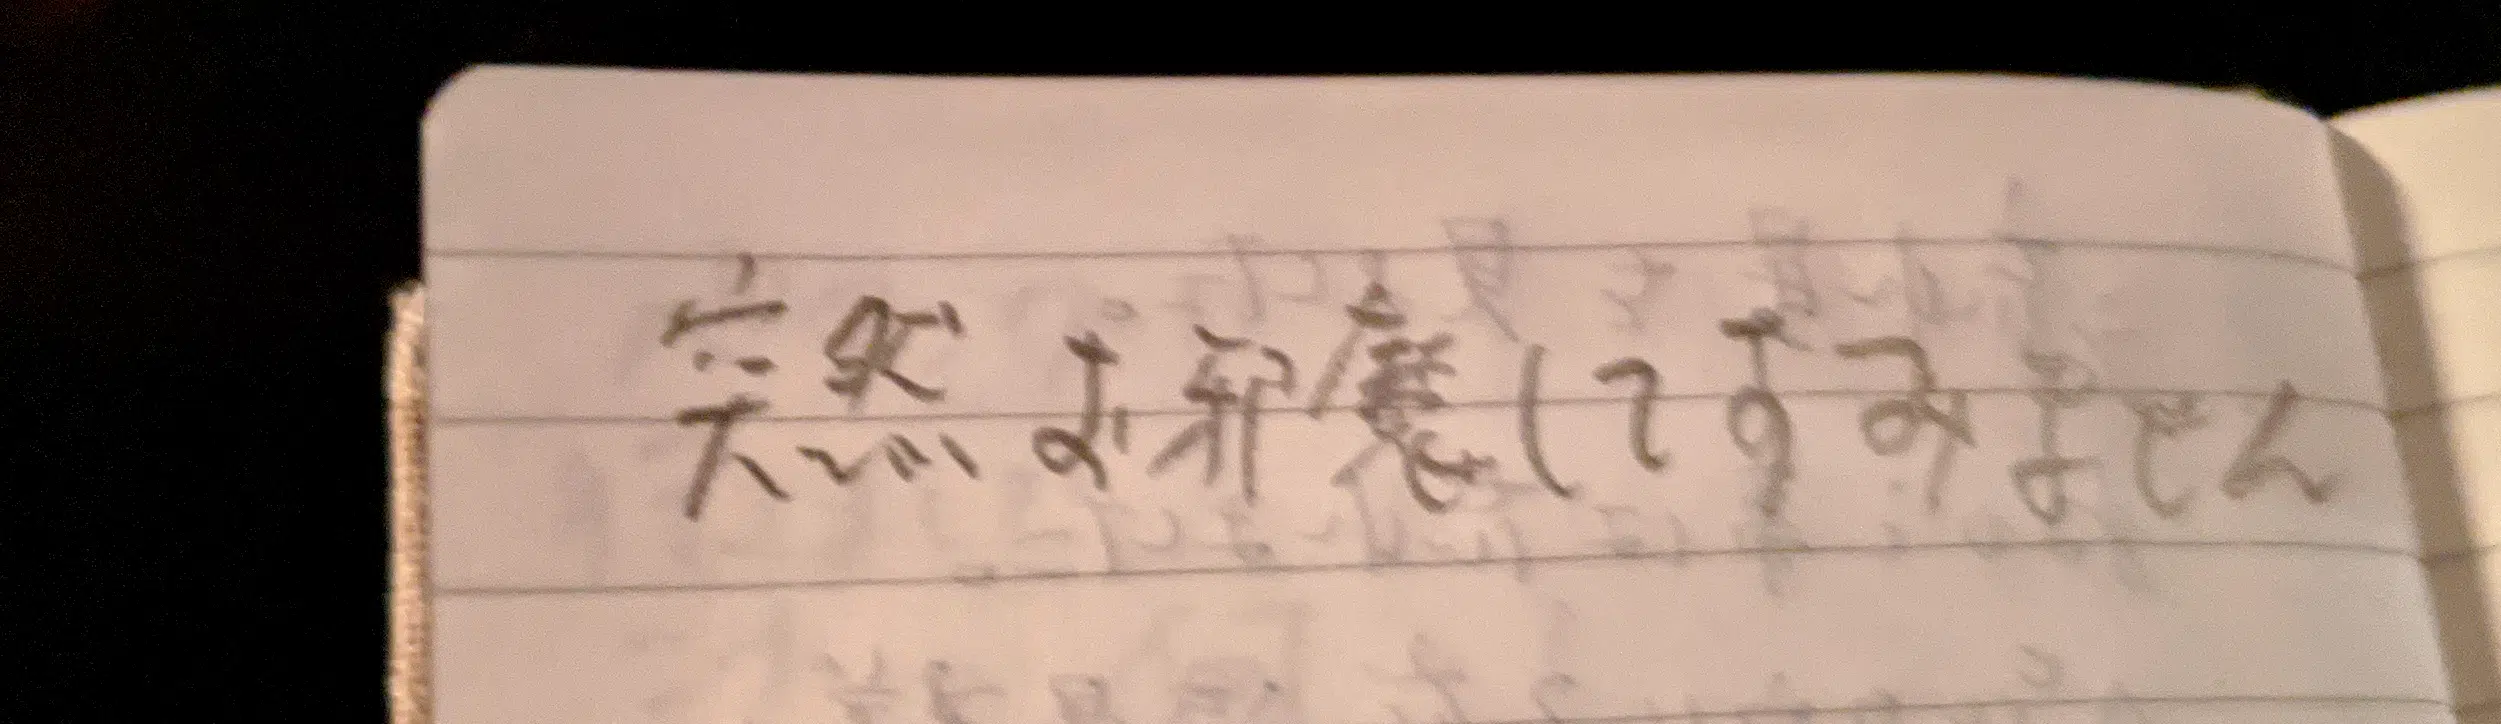 突然お邪魔してすみません